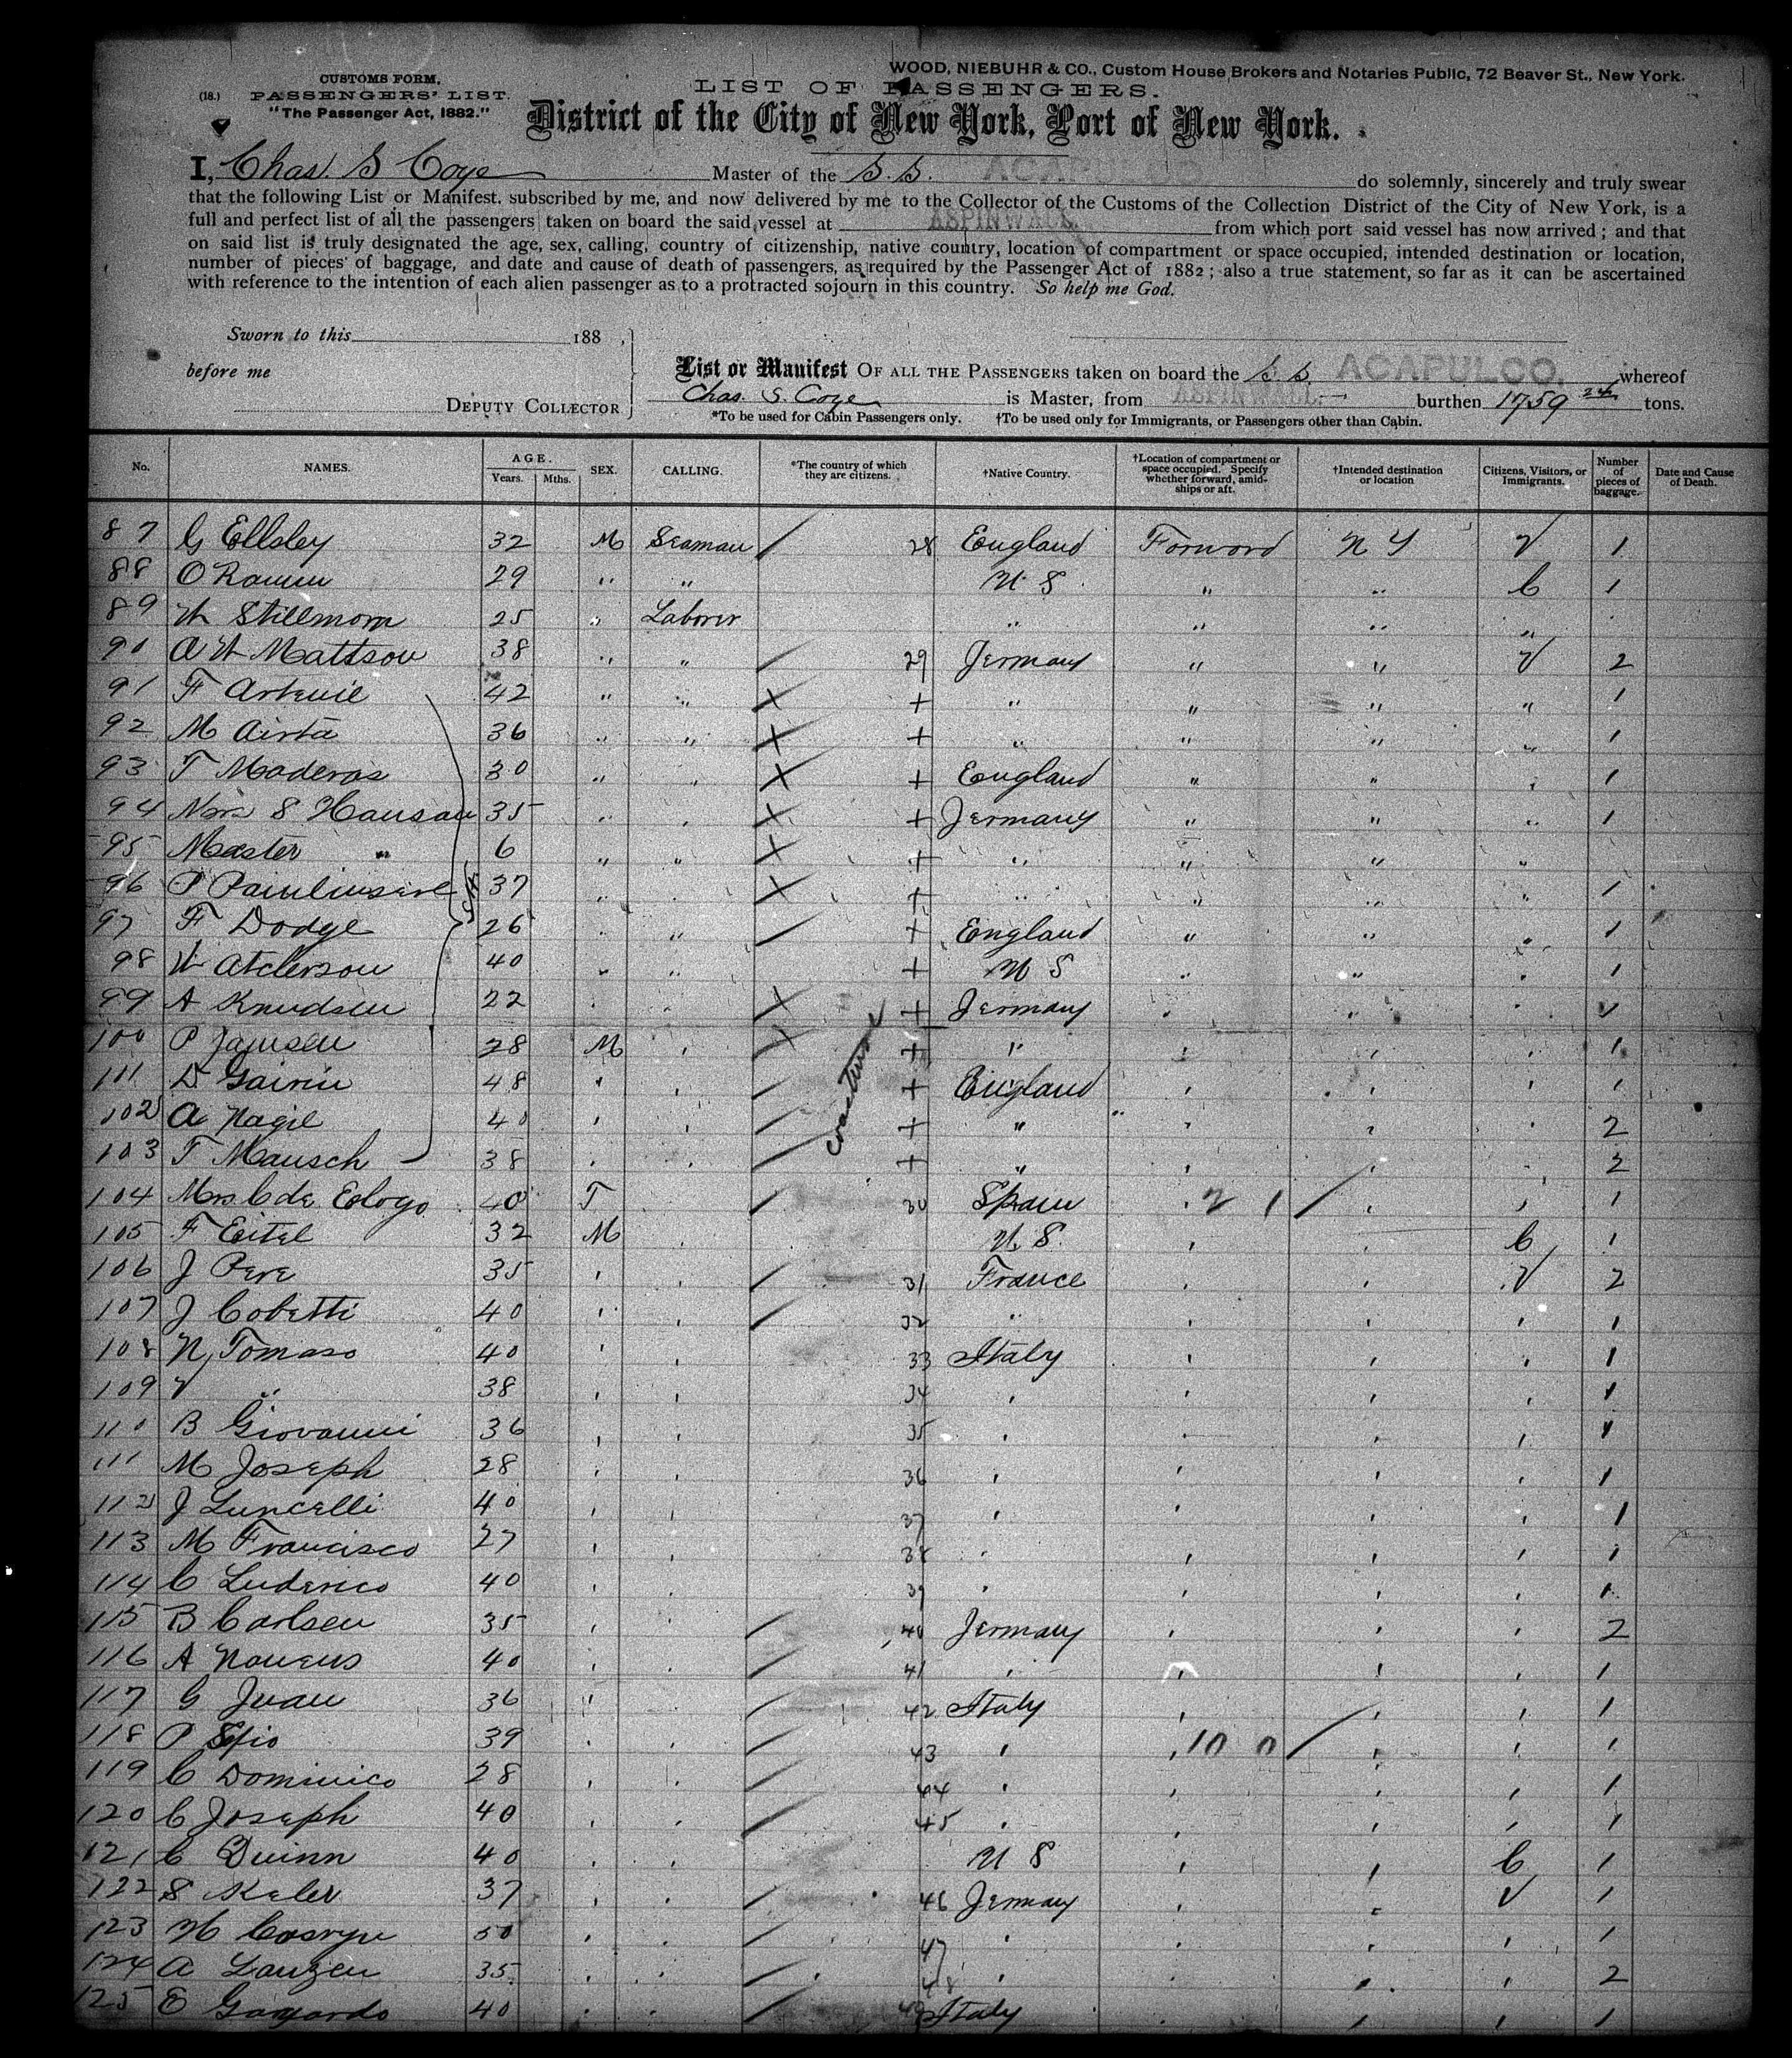 WOOD, NIEBUHR & CO., Custom House Brokers and Notaries Public, 72 Beaver St., New York.
CUSTOMS FORM,
(18.) PASSENGERS' LIST.
"The Passenger Act, 1882."
LIST OF PASSENGERS.
District of the City of New York, Port of New York.
I, Chas. S Coye Master of the S.S. ACAPULCO do solemnly, sincerely and truly swear
that the following List or Manifest, subscribed by me, and now delivered by me to the Collector of the Customs of the Collection District of the City of New York, is a
full and perfect list of all the passengers taken on board the said vessel at ASPINWALL from which port said vessel has now arrived; and that
on said list is truly designated the age, sex, calling, country of citizenship, native country, location of compartment or space occupied, intended destination or location,
number of pieces of baggage, and date and cause of death of passengers, as required by the Passenger Act of 1882; also a true statement, so far as it can be ascertained
with reference to the intention of each alien passenger as to a protracted sojourn in this country. So help me God.
Sworn to this 188 ,
before me
DEPUTY COLLECTOR
List or Manifest OF ALL THE PASSENGERS taken on board the S.S. ACAPULCO. whereof
Chas. S. Coye is Master, from ASPINWALL burthen 1759 24 tons.
*To be used for Cabin Passengers only. †To be used only for Immigrants, or Passengers other than Cabin.
No. NAMES. AGE. Years. Mths. SEX. CALLING. *The country of which they are citizens. †Native Country. †Location of compartment or space occupied. Specify whether forward, amidships or aft. †Intended destination or location Citizens, Visitors, or Immigrants. Number of pieces of baggage. Date and Cause of Death.
87 G Ellsley 32 M Seaman / 28 England Forword N Y V 1
88 29 " " U S " " C 1
89 W Stillmorn 25 " Laborer " " " "
90 A W Mattson 38 " " / 29 Jermany " " V 2
91 F 42 " " X + " " " " 1
92 M Airta 36 " " X + " " " " 1
93 T Maderas 30 " " X + England " " " 1
94 Mrs S Hansan 35 " " X + Jermany " " " 1
95 Master " 6 " " X + " " " "
96 P 37 " " X + " " " " 1
97 F Dodge 26 " " / + England " " " 1
98 W Atclerson 40 " " + U S " " " 1
99 A Knudsen 22 " " X + Jermany " " "
100 P Jamsen 28 M " X + " " " " 1
111 D Gairin 48 " " / + England " " " 1
102 A Nagle 40 " " / + " " " " 2
103 T Mausch 38 " " / + " " " " 2
104 Mrs C de Eologo 40 F " / 30 Spain " 2 1 / " " 1
105 F Eitel 32 M " U.S. " " C 1
106 J Pere 35 " " / 31 France " " V 2
107 J Cobetti 40 " " / 32 " " " " 1
108 N Tomaso 40 " " 33 Italy " " " 1
109 V " 38 " " 34 " " " " 1
110 B Giovanni 36 " " 35 " " " " 1
111 M Joseph 28 " " 36 " " " " 1
112 J Luncelli 40 " " 37 " " " " 1
113 M Francisco 27 " " 38 " " " " 1
114 C Luderico 40 " " 39 " " " " 1
115 B Carlsen 35 " " / 40 Jermany " " " 2
116 A 40 " " / 41 " " " " 1
117 G Juan 36 " " / 42 Italy " " " 1
118 P 39 " " / 43 " " 10 0 / " " 1
119 C Dominico 28 " " / 44 " " " " 1
120 C Joseph 40 " " / 45 " " " " 1
121 C Quinn 40 " " U S " " C 1
122 S Keler 37 " " / 46 Jermany " " V 1
123 50 " " / 47 " " " " 1
124 A Lanzen 35 " " / 48 " " " " 2
125 E 40 " " / 49 Italy " " " 1